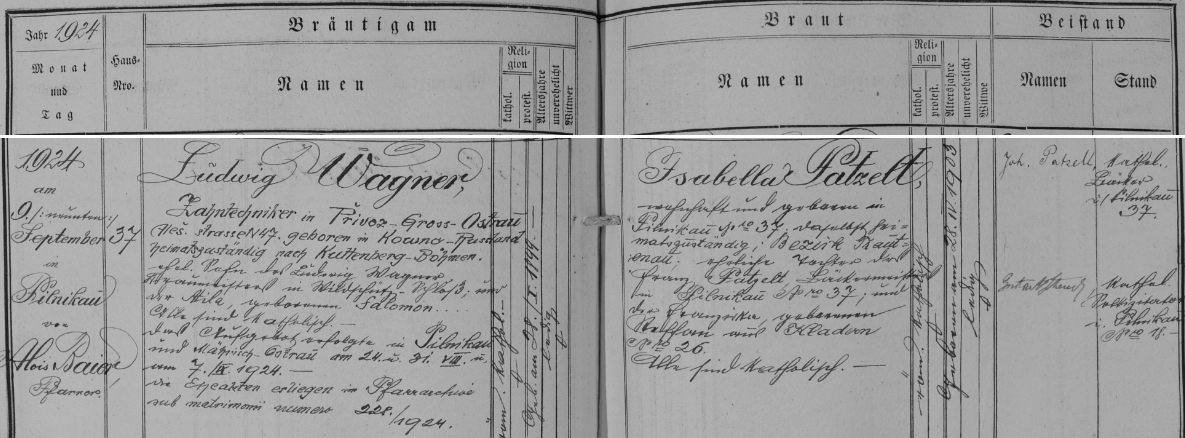 Jahr 1924
Monat
und
Tag
Haus-
Nro.
Bräutigam
Namen
Reli-
gion
kathol.
protest.
Altersjahre
unverehelicht
Wittwer
Braut
Namen
Reli-
gion
kathol.
protest.
Altersjahre
unverehelicht
Wittwe
Beistand
Namen
Stand
1924
am
9. /: neunten :/
September
in
Pilnikau
vor
Alois Baier
Pfarrer.
37
Ludwig Wagner,
Zahntechniker in Přivoz-Gross-Ostrau
strasse N 47. geboren in Kowno-Russland
heimatszuständig nach Kuttenberg-Böhmen.
ehel. Sohn des Ludwig Wagner,
Braumeisters in Wildschütz Schloß; und
der geborenen Salomon....
Alle sind katholisch. —
das Aufgebot erfolgte in Pilnikau
und Mährisch-Ostrau am 24. u. 31. VIII. u.
am 7. IX. 1924. —
die Eheakten erliegen im Pfarrarchive
sub matrimonii numero 228./1924.
röm. kathol. —
Geb. am 28./X. 1899. —
ledig
Isabella Patzelt,
wohnhaft und geboren in
Pilnikau Nro 37; daselbst hei-
matszuständig; Bezirk Traut-
enau. eheliche Tochter des
Franz Patzelt Bäckermeister
in Pilnikau Nro 37; und
der Franziska, geborenen
Steffan aus Kladern
Nro 26.
Alle sind katholisch. —
röm. katholisch
Geboren am 28. IV. 1903
ledig
Joh. Patzelt
kathol.
Bäcker
i/ Pilnikau
37.
kathol.
i. Pilnikau
Nro 18. —